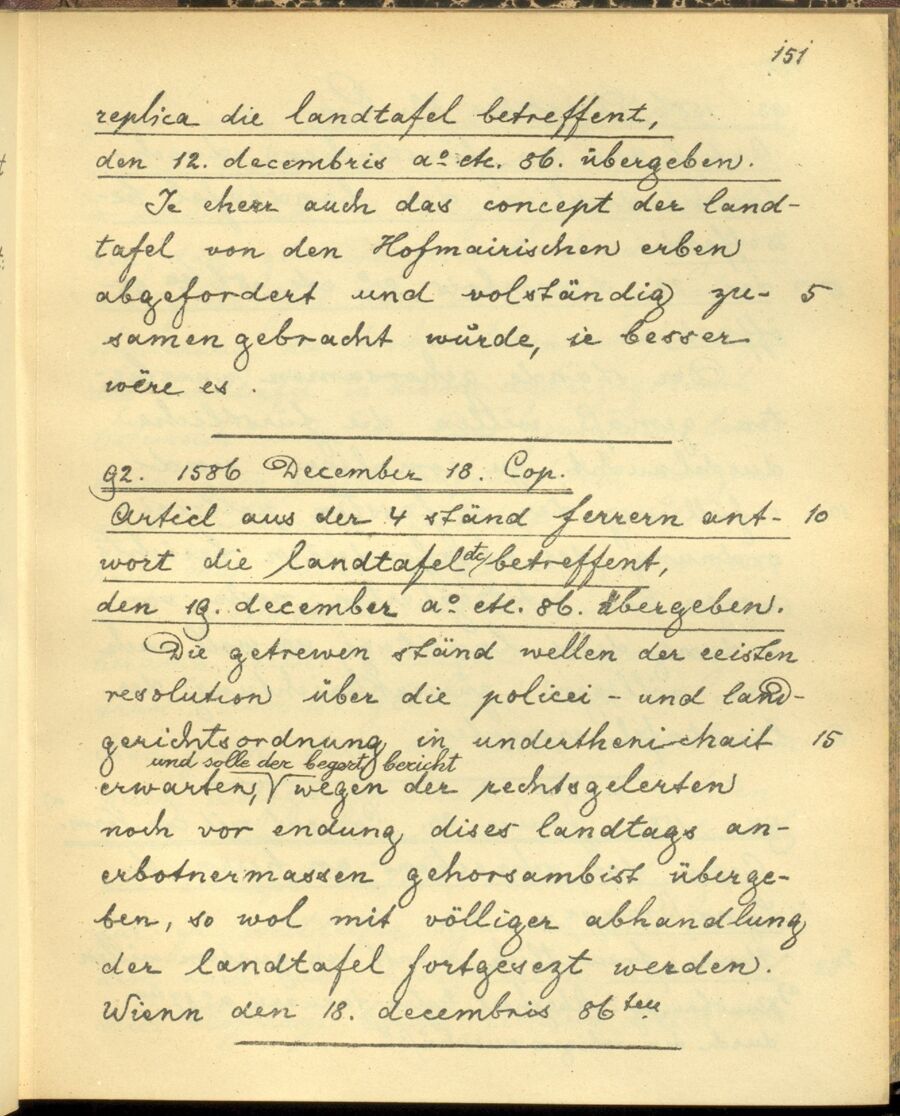 151
replica die landtafel betreffent,
den 12. decembris aº etc. 86. übergeben.
Je eherr auch das concept der land-
tafel von den Hofmairischen erben
abgefordert und volständig zu- 5
samen gebracht wurde, ie besser
wëre es.
92. 1586 December 18. Cop.
Articl aus der 4 ständ ferrern ant- 10
wort die landtafel etc. betreffent,
den 19. december aº etc. 86. übergeben.
Die getrewen ständ wellen der
resolution über die policei- und land-
gerichtsordnung in underthenichait 15
und solle der begert bericht
erwarten, wegen der rechtsgelerten
noch vor endung dises landtags an-
erbotnermassen gehorsambist überge-
ben, so wol mit völliger abhandlung
der landtafel fortgesezt werden.
Wienn den 18. decembris 86ten